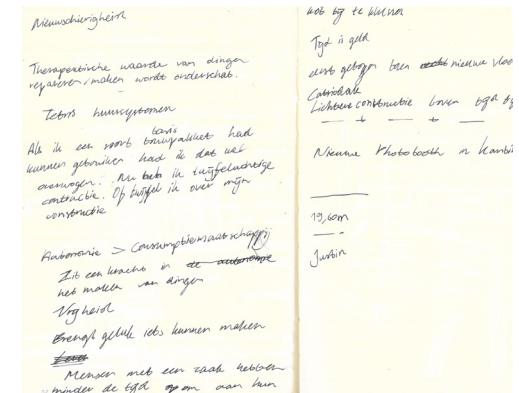 Nieuwschierigheid
Therapeutische waarde van dingen
repareren/maken wordt onderschat.
Tetris huursystomen
Als ik een soort basis bouwpakket had
kunnen gebruiken had ik dat wel
overwogen. Nu heb ik twijfelachtige
contructie. Of twijfel ik over mijn
constructie
Autonomie > Consumptiemaatschappij
Zit een kracht in de autonomie
het maken van dingen
Vrijheid
Brengt geluk iets kunnen maken
Mensen met een zaak hebben
minder de tijd op om aan hun
wat bij te kletsen
Tijd is geld
eerst gebogen toen nieuwe vloer
Lichtere constructie boven
Nieuwe Photobooth in
19,60m
Justin